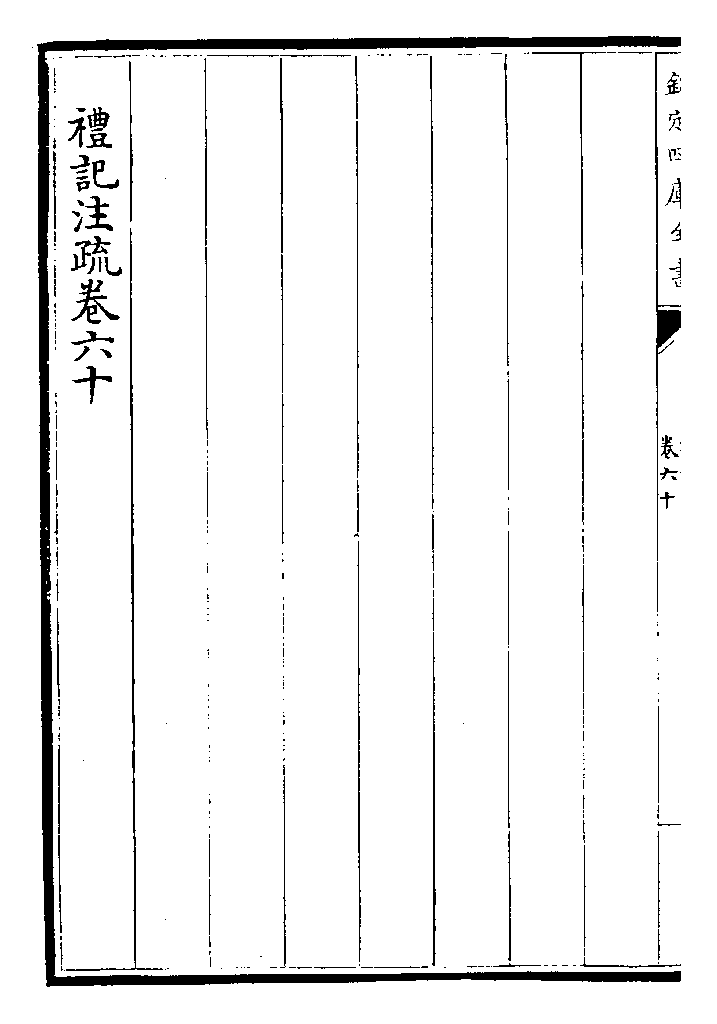 欽定四庫全書
卷六十
禮記注疏卷六十